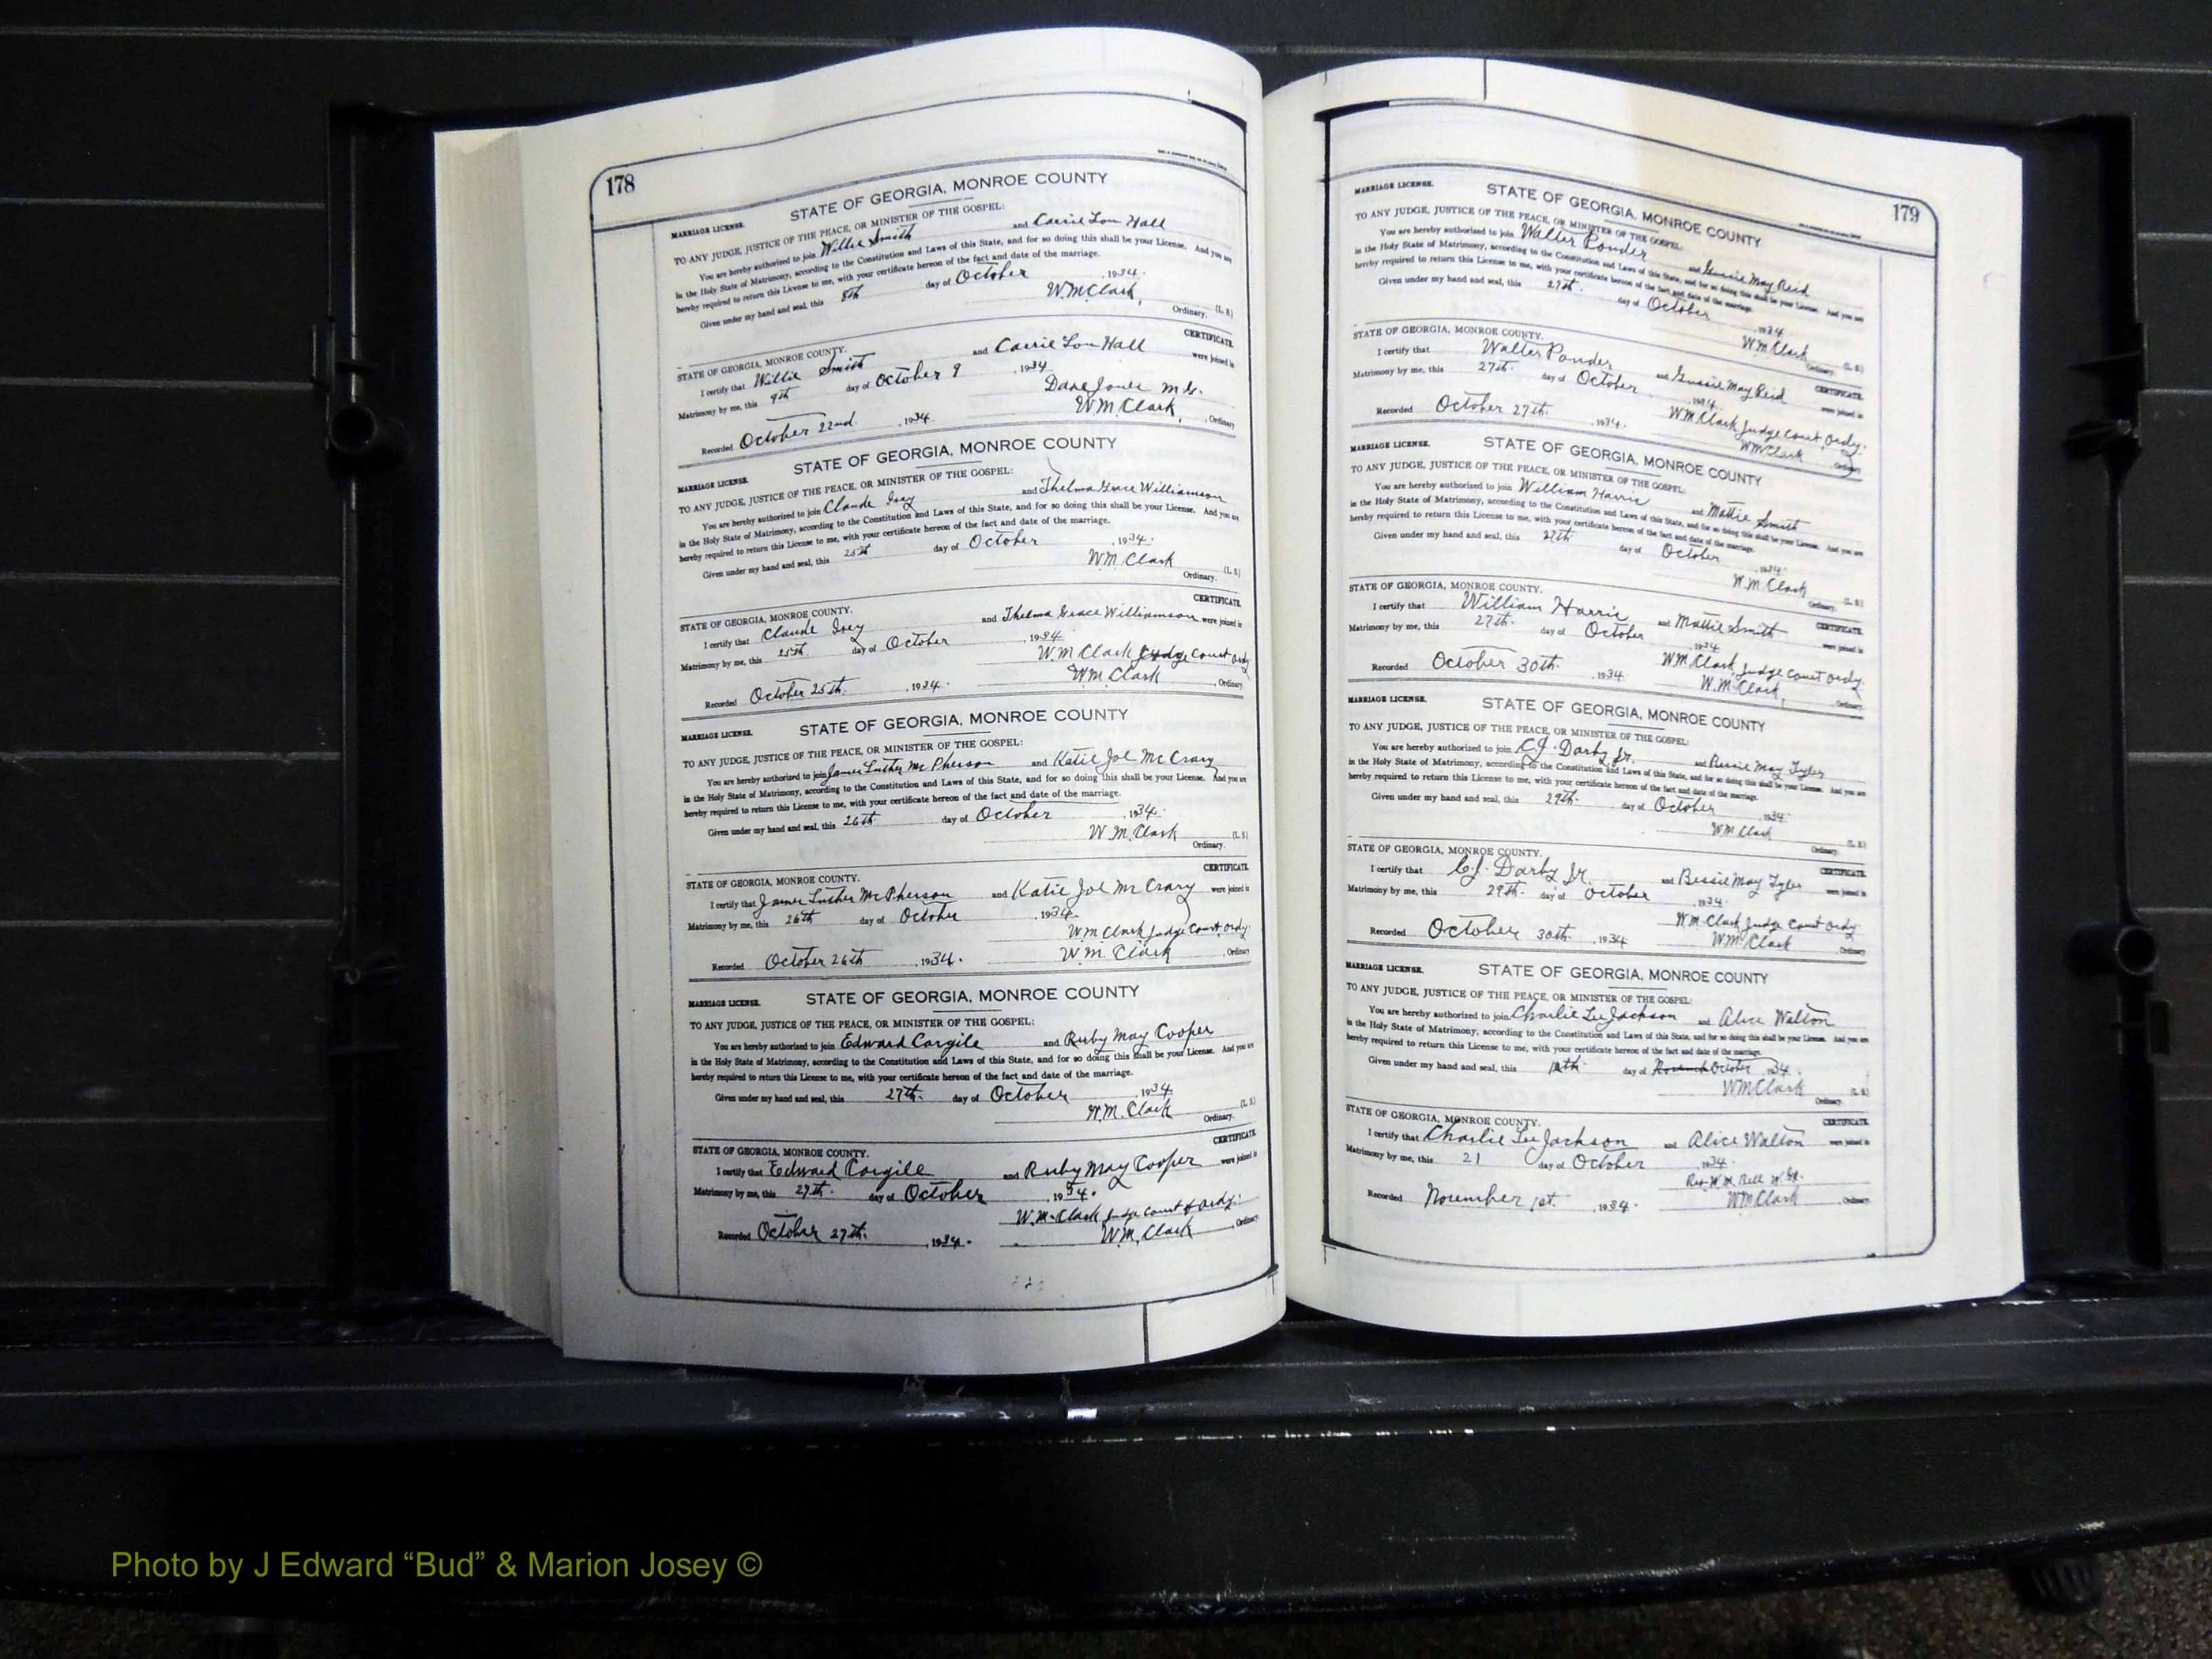 178
MARRIAGE LICENSE. STATE OF GEORGIA, MONROE COUNTY
TO ANY JUDGE, JUSTICE OF THE PEACE, OR MINISTER OF THE GOSPEL:
You are hereby authorized to join Willie Smith and Carrie Lou Hall
in the Holy State of Matrimony, according to the Constitution and Laws of this State, and for so doing this shall be your License. And you are
hereby required to return this License to me, with your certificate hereon of the fact and date of the marriage.
Given under my hand and seal, this 8th day of October, 1934.
W.M. Clark, (L. S.)
Ordinary.
STATE OF GEORGIA, MONROE COUNTY. CERTIFICATE
I certify that Willie Smith and Carrie Lou Hall were joined in
Matrimony by me, this 9th day of October 9, 1934
Dave Jones M.G.
Recorded October 22nd. , 1934. W.M. Clark, , Ordinary
MARRIAGE LICENSE. STATE OF GEORGIA, MONROE COUNTY
TO ANY JUDGE, JUSTICE OF THE PEACE, OR MINISTER OF THE GOSPEL:
You are hereby authorized to join Claude Ivey and Thelma Grace Williamson
in the Holy State of Matrimony, according to the Constitution and Laws of this State, and for so doing this shall be your License. And you are
hereby required to return this License to me, with your certificate hereon of the fact and date of the marriage.
Given under my hand and seal, this 25th day of October, 1934.
W.M. Clark (L. S.)
Ordinary.
STATE OF GEORGIA, MONROE COUNTY. CERTIFICATE
I certify that Claude Ivey and Thelma Grace Williamson were joined in
Matrimony by me, this 25th. day of October, 1934
W.M Clark Judge Court Ordy
Recorded October 25th. , 1934. W.M. Clark , Ordinary.
MARRIAGE LICENSE. STATE OF GEORGIA, MONROE COUNTY
TO ANY JUDGE, JUSTICE OF THE PEACE, OR MINISTER OF THE GOSPEL:
You are hereby authorized to join James Luther McPherson and Katie Joe McCrary
in the Holy State of Matrimony, according to the Constitution and Laws of this State, and for so doing this shall be your License. And you are
hereby required to return this License to me, with your certificate hereon of the fact and date of the marriage.
Given under my hand and seal, this 26th. day of October, 1934.
W.M. Clark (L. S.)
Ordinary.
STATE OF GEORGIA, MONROE COUNTY. CERTIFICATE
I certify that James Luther McPherson and Katie Joe McCrary were joined in
Matrimony by me, this 26th day of October, 1934.
W.M Clark Judge Court Ordy.
Recorded October 26th , 1934. W.M. Clark , Ordinary
MARRIAGE LICENSE. STATE OF GEORGIA, MONROE COUNTY
TO ANY JUDGE, JUSTICE OF THE PEACE, OR MINISTER OF THE GOSPEL:
You are hereby authorized to join Edward Cargile and Ruby May Cooper
in the Holy State of Matrimony, according to the Constitution and Laws of this State, and for so doing this shall be your License. And you are
hereby required to return this License to me, with your certificate hereon of the fact and date of the marriage.
Given under my hand and seal, this 27th. day of October, 1934
W.M. Clark (L. S.)
Ordinary.
STATE OF GEORGIA, MONROE COUNTY. CERTIFICATE
I certify that Edward Cargile and Ruby May Cooper were joined in
Matrimony by me, this 27th. day of October, 1934.
W.M. Clark Judge Court of Ordy.
Recorded October 27th. , 1934. W.M. Clark , Ordinary
179
MARRIAGE LICENSE. STATE OF GEORGIA, MONROE COUNTY
TO ANY JUDGE, JUSTICE OF THE PEACE, OR MINISTER OF THE GOSPEL:
You are hereby authorized to join Walter Ponder and Gussie May Reid
in the Holy State of Matrimony, according to the Constitution and Laws of this State, and for so doing this shall be your License. And you are
hereby required to return this License to me, with your certificate hereon of the fact and date of the marriage.
Given under my hand and seal, this 27th. day of October, 1934
W.M. Clark (L. S.)
Ordinary.
STATE OF GEORGIA, MONROE COUNTY. CERTIFICATE
I certify that Walter Ponder and Gussie May Reid were joined in
Matrimony by me, this 27th. day of October, 1934.
W.M. Clark Judge Court Ordy.
Recorded October 27th. , 1934. W.M. Clark Ordinary
MARRIAGE LICENSE. STATE OF GEORGIA, MONROE COUNTY
TO ANY JUDGE, JUSTICE OF THE PEACE, OR MINISTER OF THE GOSPEL:
You are hereby authorized to join William Harris and Mattie Smith
in the Holy State of Matrimony, according to the Constitution and Laws of this State, and for so doing this shall be your License. And you are
hereby required to return this License to me, with your certificate hereon of the fact and date of the marriage.
Given under my hand and seal, this 27th day of October, 1934.
W.M Clark (L. S.)
Ordinary.
STATE OF GEORGIA, MONROE COUNTY. CERTIFICATE
I certify that William Harris and Mattie Smith were joined in
Matrimony by me, this 27th. day of October, 1934
W.M. Clark, Judge Court Ordy.
Recorded October 30th. , 1934 W.M. Clark, Ordinary.
MARRIAGE LICENSE. STATE OF GEORGIA, MONROE COUNTY
TO ANY JUDGE, JUSTICE OF THE PEACE, OR MINISTER OF THE GOSPEL:
You are hereby authorized to join C.J. Darby Jr. and Bessie May Tyler
in the Holy State of Matrimony, according to the Constitution and Laws of this State, and for so doing this shall be your License. And you are
hereby required to return this License to me, with your certificate hereon of the fact and date of the marriage.
Given under my hand and seal, this 29th. day of October, 1934.
W.M Clark (L. S.)
Ordinary.
STATE OF GEORGIA, MONROE COUNTY. CERTIFICATE
I certify that C.J. Darby Jr. and Bessie May Tyler were joined in
Matrimony by me, this 29th. day of October, 1934.
W.M. Clark Judge Court Ordy
Recorded October 30th. , 1934 W.M. Clark Ordinary
MARRIAGE LICENSE. STATE OF GEORGIA, MONROE COUNTY
TO ANY JUDGE, JUSTICE OF THE PEACE, OR MINISTER OF THE GOSPEL:
You are hereby authorized to join Charlie Lee Jackson and Alice Walton
in the Holy State of Matrimony, according to the Constitution and Laws of this State, and for so doing this shall be your License. And you are
hereby required to return this License to me, with your certificate hereon of the fact and date of the marriage.
Given under my hand and seal, this day of October 1934.
W.M Clark (L. S.)
Ordinary.
STATE OF GEORGIA, MONROE COUNTY. CERTIFICATE
I certify that Charlie Lee Jackson and Alice Walton were joined in
Matrimony by me, this 21 day of October, 1934.
Rev. W.M. Bell
Recorded November 1st. , 1934. W.M Clark , Ordinary.
Photo by J Edward “Bud” & Marion Josey ©